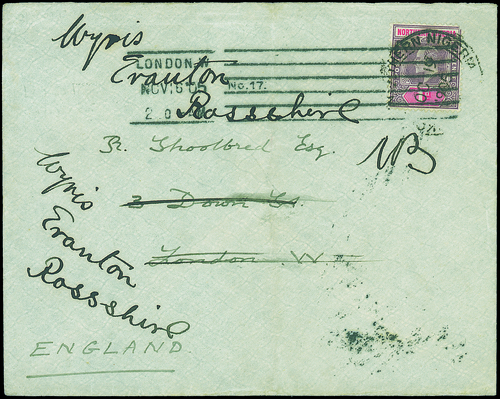 Wyvis
Evanton
Rossshire
LONDON.W
NOV, 6 05
No. 17.
NORTH
ERN NIGERIA
R. Shoolbred Esq.
3 Down St.
London W
Wyvis
Evanton
Rossshire
ENGLAND